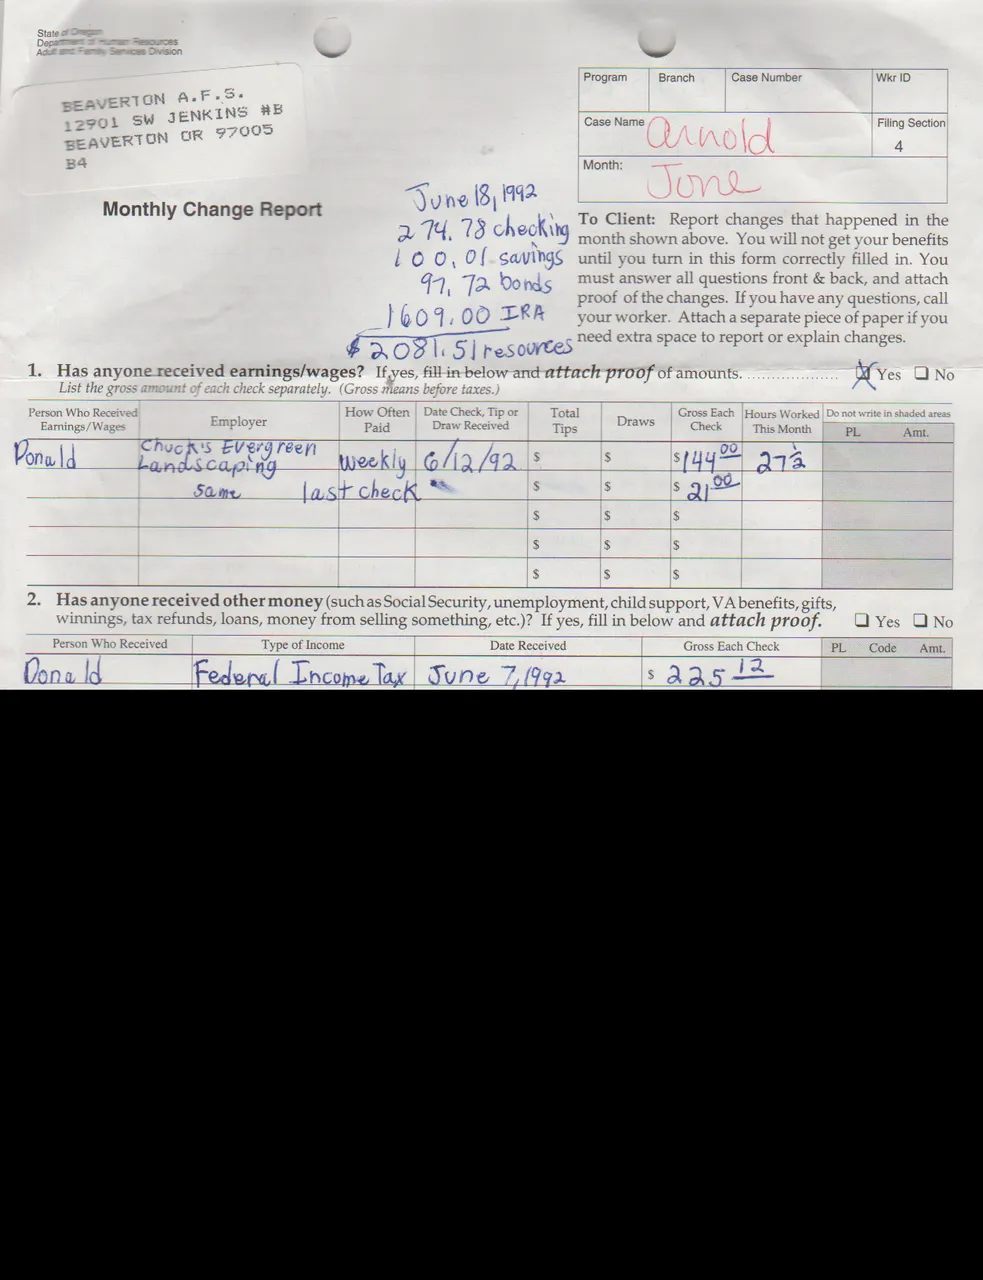 State of Oregon
Department of Human Resources
Adult and Family Services Division
BEAVERTON A.F.S.
12901 SW JENKINS #B
BEAVERTON OR 97005
B4
Program Branch Case Number Wkr ID
Case Name Arnold Filing Section
4
Month: June
Monthly Change Report
June 18, 1992
274.78 checking
100.01 savings
97.72 bonds
1609.00 IRA
$2081.51 resources
To Client: Report changes that happened in the
month shown above. You will not get your benefits
until you turn in this form correctly filled in. You
must answer all questions front & back, and attach
proof of the changes. If you have any questions, call
your worker. Attach a separate piece of paper if you
need extra space to report or explain changes.
1. Has anyone received earnings/wages? If yes, fill in below and attach proof of amounts. ................... ☒ Yes ❑ No
List the gross amount of each check separately. (Gross means before taxes.)
Person Who Received Earnings/Wages Employer How Often Paid Date Check, Tip or Draw Received Total Tips Draws Gross Each Check Hours Worked This Month Do not write in shaded areas
PL Amt.
Donald Chuck's Evergreen Landscaping weekly 6/12/92 $ $ $144.00 27½
same last check " $ $ $21.00
$ $ $
$ $ $
$ $ $
2. Has anyone received other money (such as Social Security, unemployment, child support, VA benefits, gifts,
winnings, tax refunds, loans, money from selling something, etc.)? If yes, fill in below and attach proof. ❑ Yes ❑ No
Person Who Received Type of Income Date Received Gross Each Check PL Code Amt.
Donald Federal Income Tax June 7, 1992 $ 225 12